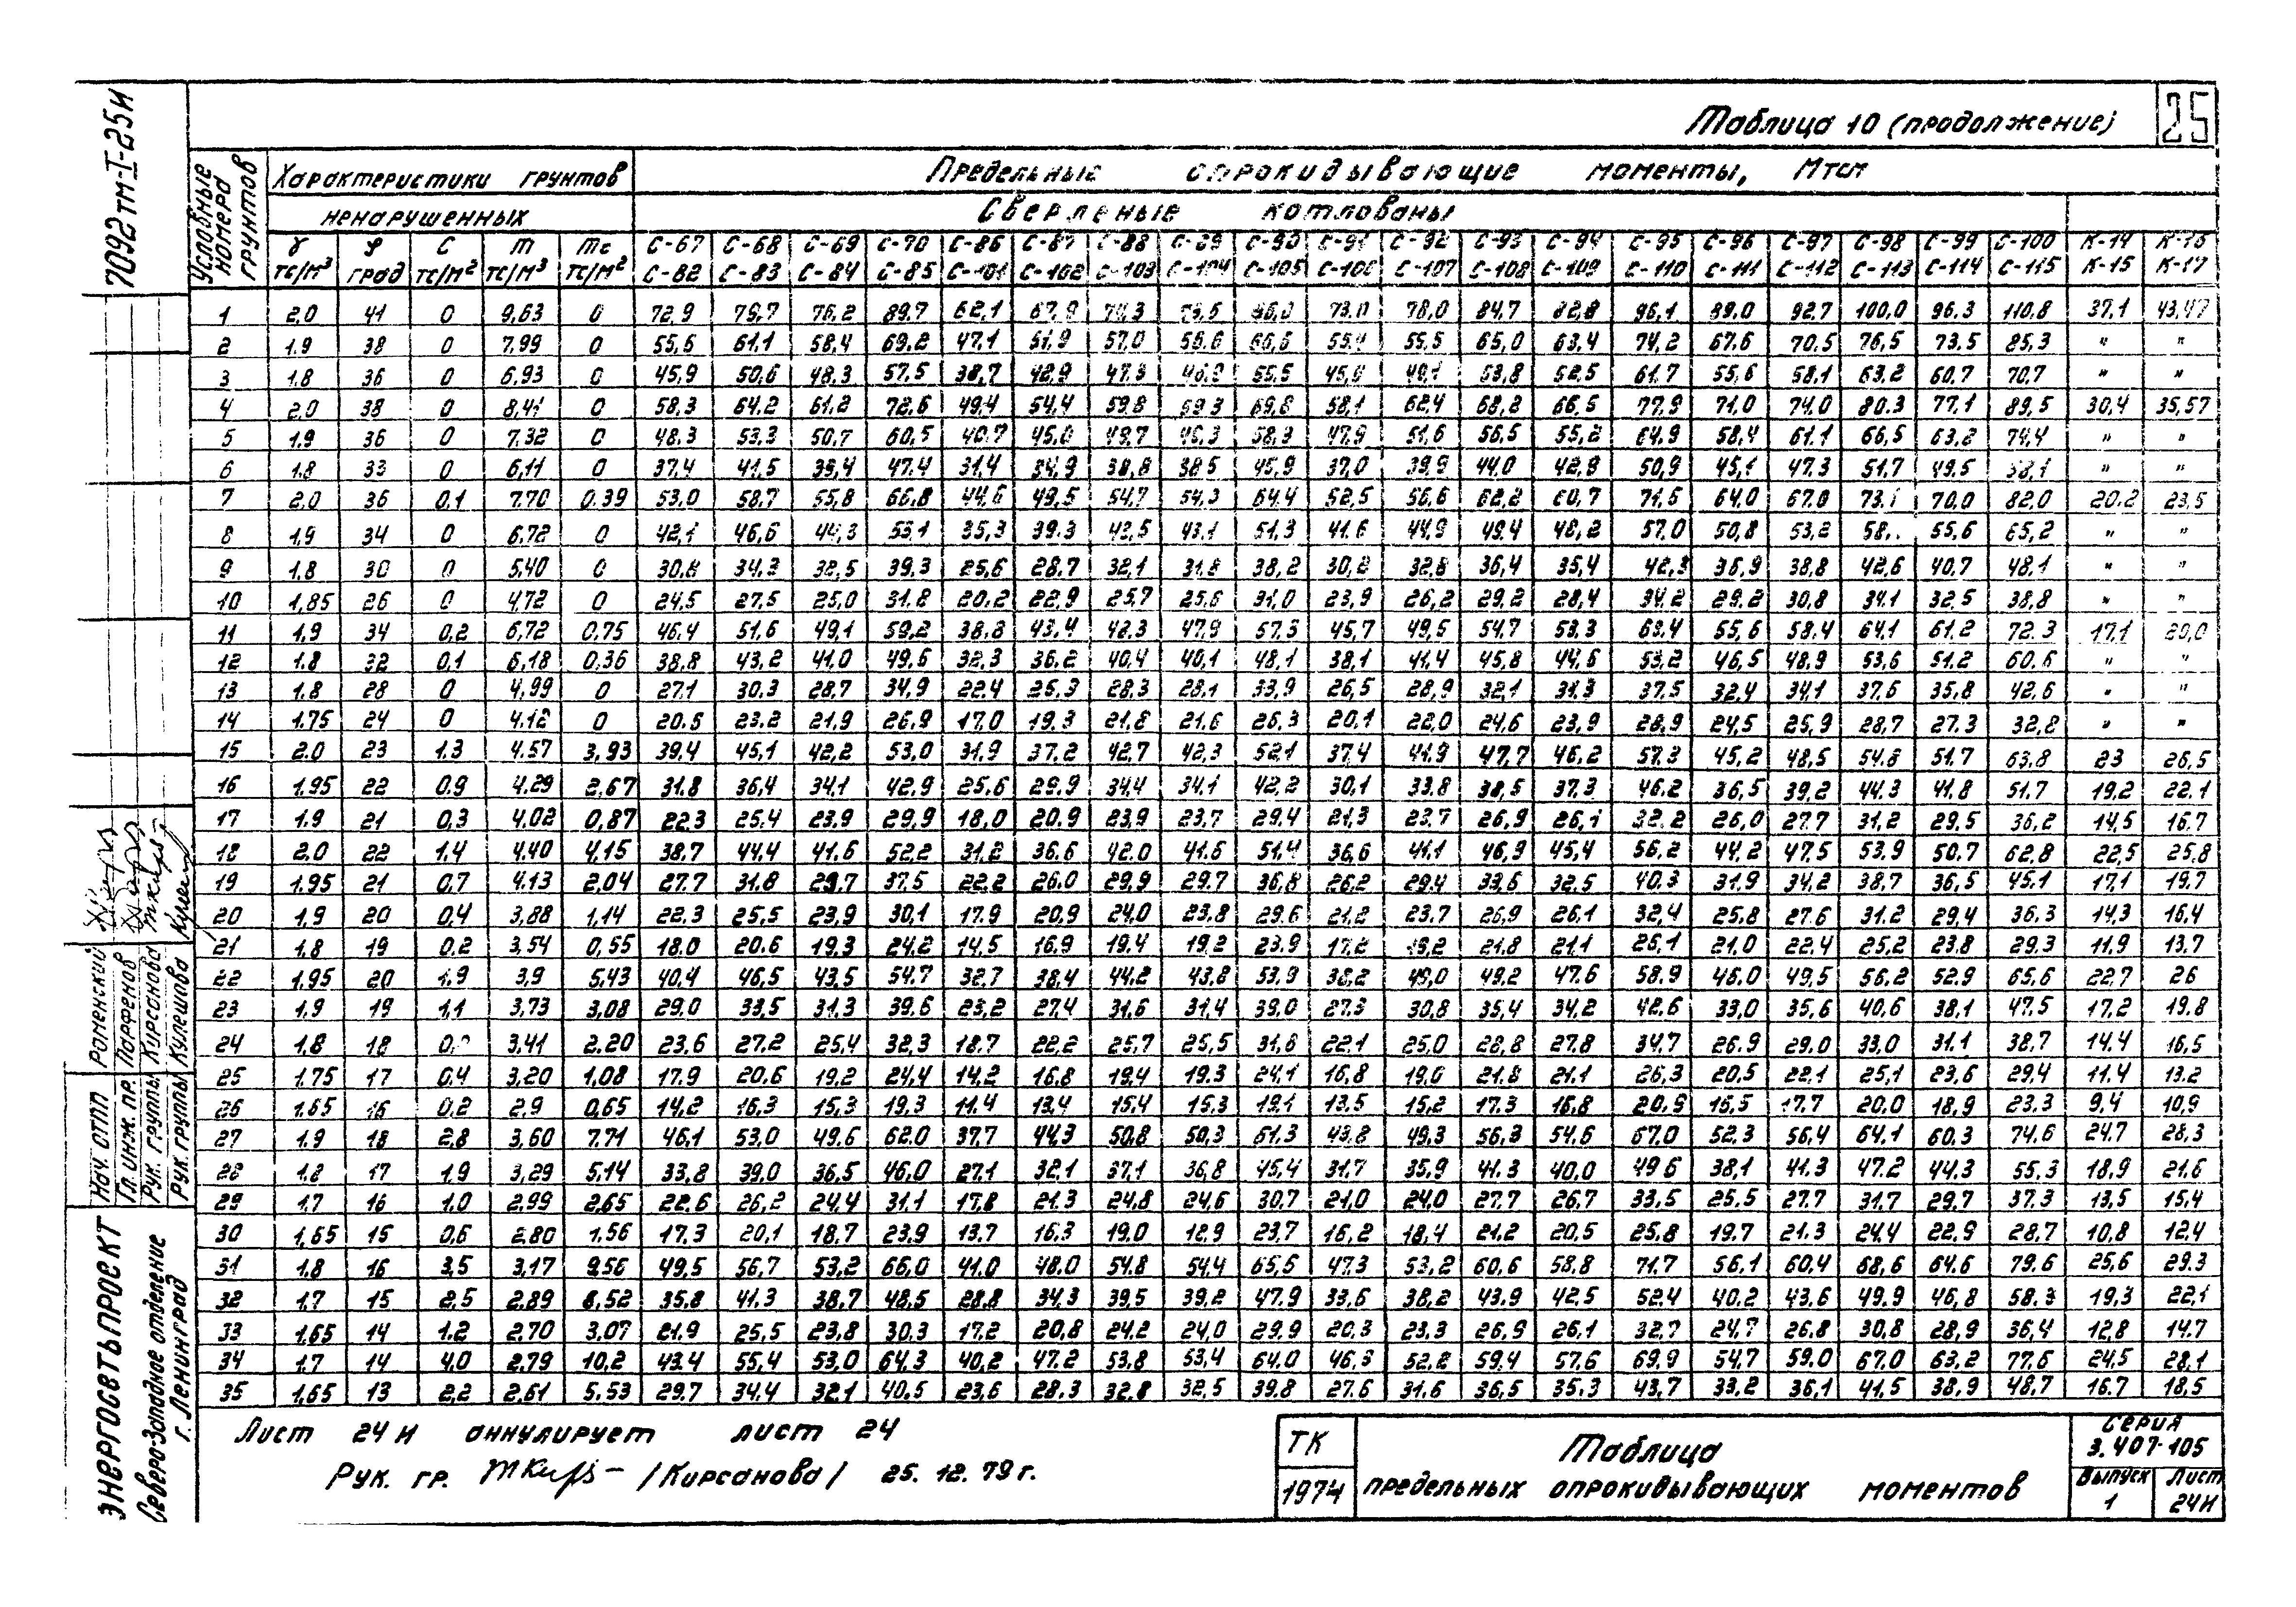 Таблица 10 (продолжение) 25
7092тм-I-25И
Условные номера грунтов
Характеристики грунтов
Предельные опрокидывающие моменты, Мтсм
ненарушенных
Сверленые котлованы
γ тс/м³ φ град C тс/м² m тс/м³ mc тс/м²
С-67 С-68 С-69 С-70 С-86 С-87 С-88 С-89 С-90 С-91 С-92 С-93 С-94 С-95 С-96 С-97 С-98 С-99 С-100 К-14 К-16
С-82 С-83 С-84 С-85 С-101 С-102 С-103 С-104 С-105 С-106 С-107 С-108 С-109 С-110 С-111 С-112 С-113 С-114 С-115 К-15 К-17
1 2,0 41 0 9,63 0 72,9 79,7 76,2 89,7 62,1 73,0 78,0 84,7 82,8 96,1 89,0 92,7 100,0 96,3 110,8 37,1 43,47
2 1,9 38 0 7,99 0 55,6 61,1 58,4 69,2 47,1 51,9 57,0 56,6 66,6 55,5 65,0 63,4 74,2 67,6 70,5 76,5 73,5 85,3 " "
3 1,8 36 0 6,93 0 45,9 50,6 48,3 57,5 38,7 42,9 47,3 55,5 53,8 52,5 61,7 55,6 58,1 63,2 60,7 70,7 " "
4 2,0 38 0 8,41 0 58,3 64,2 61,2 72,6 49,4 54,4 59,8 59,3 69,8 58,1 62,4 68,2 66,5 77,9 71,0 74,0 80,3 77,1 89,5 30,4 35,57
5 1,9 36 0 7,32 0 48,3 53,3 50,7 60,5 40,7 45,0 49,7 58,3 47,9 51,6 56,5 55,2 64,9 58,4 61,1 66,5 63,2 74,4 " "
6 1,8 33 0 6,11 0 37,4 41,5 39,4 47,4 31,4 34,9 38,8 38,5 45,9 37,0 39,9 44,0 42,8 50,9 45,1 47,3 51,7 49,5 " "
7 2,0 36 0,1 7,70 0,39 53,0 58,7 55,8 66,8 44,6 49,5 54,7 54,3 64,4 52,5 56,6 62,2 60,7 71,6 64,0 67,0 73,1 70,0 82,0 20,2 23,5
8 1,9 34 0 6,72 0 42,1 46,6 44,3 53,1 35,3 39,3 43,5 43,1 51,3 41,6 44,9 49,4 48,2 57,0 50,8 53,2 55,6 65,2 " "
9 1,8 30 0 5,40 0 30,8 34,3 32,5 39,3 25,6 28,7 32,1 31,8 38,2 30,2 32,8 36,4 35,4 42,3 36,9 38,8 42,6 40,7 48,1 " "
10 1,85 26 0 4,72 0 24,5 27,5 25,0 31,8 20,2 22,9 25,7 25,6 31,0 23,9 26,2 29,2 28,4 34,2 29,2 30,8 34,1 32,5 38,8 " "
11 1,9 34 0,2 6,72 0,75 46,4 51,6 49,1 59,2 38,8 43,4 48,3 47,9 57,3 45,7 49,5 54,7 53,3 63,4 55,6 58,4 64,1 61,2 72,3 17,1 20,0
12 1,8 32 0,1 6,18 0,36 38,8 43,2 41,0 49,6 32,3 36,2 40,4 40,1 48,1 38,1 41,4 45,8 44,6 53,2 46,5 48,9 53,6 51,2 60,6 " "
13 1,8 28 0 4,99 0 27,1 30,3 28,7 34,9 22,4 25,3 28,3 28,1 33,9 26,5 28,9 32,1 31,3 37,5 32,4 34,1 37,6 35,8 42,6 " "
14 1,75 24 0 4,12 0 20,5 23,2 21,9 26,9 17,0 19,3 21,8 21,6 26,3 20,1 22,0 24,6 23,9 28,9 24,5 25,9 28,7 27,3 32,8 " "
15 2,0 23 1,3 4,57 3,93 39,4 45,1 42,2 53,0 31,9 37,2 42,7 42,3 52,1 37,4 41,9 47,7 46,2 57,3 45,2 48,5 54,8 51,7 63,8 23 26,5
16 1,95 22 0,9 4,29 2,67 31,8 36,4 34,1 42,9 25,6 29,9 34,4 34,1 42,2 30,1 33,8 38,5 37,3 46,2 36,5 39,2 44,3 41,8 51,7 19,2 22,1
17 1,9 21 0,3 4,02 0,87 22,3 25,4 23,9 29,9 18,0 20,9 23,9 23,7 29,4 21,3 23,7 26,9 26,1 32,2 26,0 27,7 31,2 29,5 36,2 14,5 16,7
18 2,0 22 1,4 4,40 4,15 38,7 44,4 41,6 52,2 31,2 36,6 42,0 41,6 51,4 36,6 41,1 46,9 45,4 56,2 44,2 47,5 53,9 50,7 62,8 22,5 25,8
19 1,95 21 0,7 4,13 2,04 27,7 31,8 29,7 37,5 22,2 26,0 29,9 29,7 36,8 26,2 29,4 33,6 32,5 40,3 31,9 34,2 38,7 36,5 45,1 17,1 19,7
20 1,9 20 0,4 3,88 1,14 22,3 25,5 23,9 30,1 17,9 20,9 24,0 23,8 29,6 21,2 23,7 26,9 26,1 32,4 25,8 27,6 31,2 29,4 36,3 14,3 16,4
21 1,8 19 0,2 3,54 0,55 18,0 20,6 19,3 24,2 14,5 16,9 19,4 19,2 23,9 17,2 19,2 21,8 21,1 26,1 21,0 22,4 25,2 23,8 29,3 11,9 13,7
22 1,95 20 1,9 3,9 5,43 40,4 46,5 43,5 54,7 32,7 38,4 44,2 43,8 53,9 38,2 49,2 47,6 58,9 46,0 49,5 56,2 52,9 65,6 22,7 26
23 1,9 19 1,1 3,73 3,08 29,0 33,5 31,3 39,6 23,2 27,4 31,6 31,4 39,0 27,3 30,8 35,4 34,2 42,6 33,0 35,6 40,6 38,1 47,5 17,2 19,8
24 1,8 18 3,41 2,20 23,6 27,2 25,4 32,3 18,7 22,2 25,7 25,5 31,8 22,1 25,0 28,8 27,8 34,7 26,9 29,0 33,0 31,1 38,7 14,4 16,5
25 1,75 17 0,4 3,20 1,08 17,9 20,6 19,2 24,4 14,2 16,8 19,4 19,3 24,1 16,8 19,0 21,8 21,1 26,3 20,5 22,1 25,1 23,6 29,4 11,4 13,2
26 1,65 16 0,2 2,9 0,65 14,2 16,3 15,3 19,3 11,4 13,4 15,4 15,3 19,1 13,5 15,2 17,3 16,8 20,9 16,5 17,7 20,0 18,9 23,3 9,4 10,9
27 1,9 18 2,8 3,60 7,71 46,1 53,0 49,6 62,0 37,7 44,3 50,8 50,3 61,3 43,8 49,3 56,3 54,6 67,0 52,3 56,4 64,1 60,3 74,6 24,7 28,3
28 1,8 17 1,9 3,29 5,14 33,8 39,0 36,5 46,0 27,1 32,1 37,1 36,8 45,4 31,7 35,9 41,3 40,0 49,6 38,1 41,3 47,2 44,3 55,3 18,9 21,6
29 1,7 16 1,0 2,99 2,65 22,6 26,2 24,4 31,1 17,8 21,3 24,8 24,6 30,7 21,0 24,0 27,7 26,7 33,5 25,5 27,7 31,7 29,7 37,3 13,5 15,4
30 1,65 15 0,6 2,80 1,56 17,3 20,1 18,7 23,9 13,7 16,3 19,0 18,9 23,7 16,2 18,4 21,2 20,5 25,8 19,7 21,3 24,4 22,9 28,7 10,8 12,4
31 1,8 16 3,5 3,17 9,56 49,5 56,7 53,2 66,0 41,0 48,0 54,8 54,4 65,6 47,3 53,2 60,6 58,8 71,7 56,1 60,4 68,6 64,6 79,6 25,6 29,3
32 1,7 15 2,5 2,89 6,52 35,8 41,3 38,7 48,5 28,8 34,3 39,5 39,2 47,9 33,6 38,2 43,9 42,5 52,4 40,2 43,6 49,9 46,8 58,3 19,3 22,1
33 1,65 14 1,2 2,70 3,07 21,9 25,5 23,8 30,3 17,2 20,8 24,2 24,0 29,9 20,3 23,3 26,9 26,1 32,7 24,7 26,8 30,8 28,9 36,4 12,8 14,7
34 1,7 14 4,0 2,79 10,2 43,4 55,4 53,0 64,3 40,2 47,2 53,8 53,4 64,0 46,3 52,2 59,4 57,6 69,9 54,7 59,0 67,0 63,2 77,6 24,5 28,1
35 1,65 13 2,2 2,61 5,53 29,7 34,4 32,1 40,5 23,6 28,3 32,8 32,5 39,8 27,6 31,6 36,5 35,3 43,7 33,2 36,1 41,5 38,9 48,7 16,7 18,5
Лист 24И аннулирует лист 24
Рук. гр. /Кирсанова/ 25.12.79г.
ТК
1974
Таблица
предельных опрокидывающих моментов
Серия
3.407-105
Выпуск 1
Лист 24И
Нач. ОТПП Роменский
Гл. инж. пр. Парфенов
Рук. группы Кирсанова
Рук группы Кулешова
ЭНЕРГОСЕТЬПРОЕКТ
Северо-Западное отделение
г. Ленинград